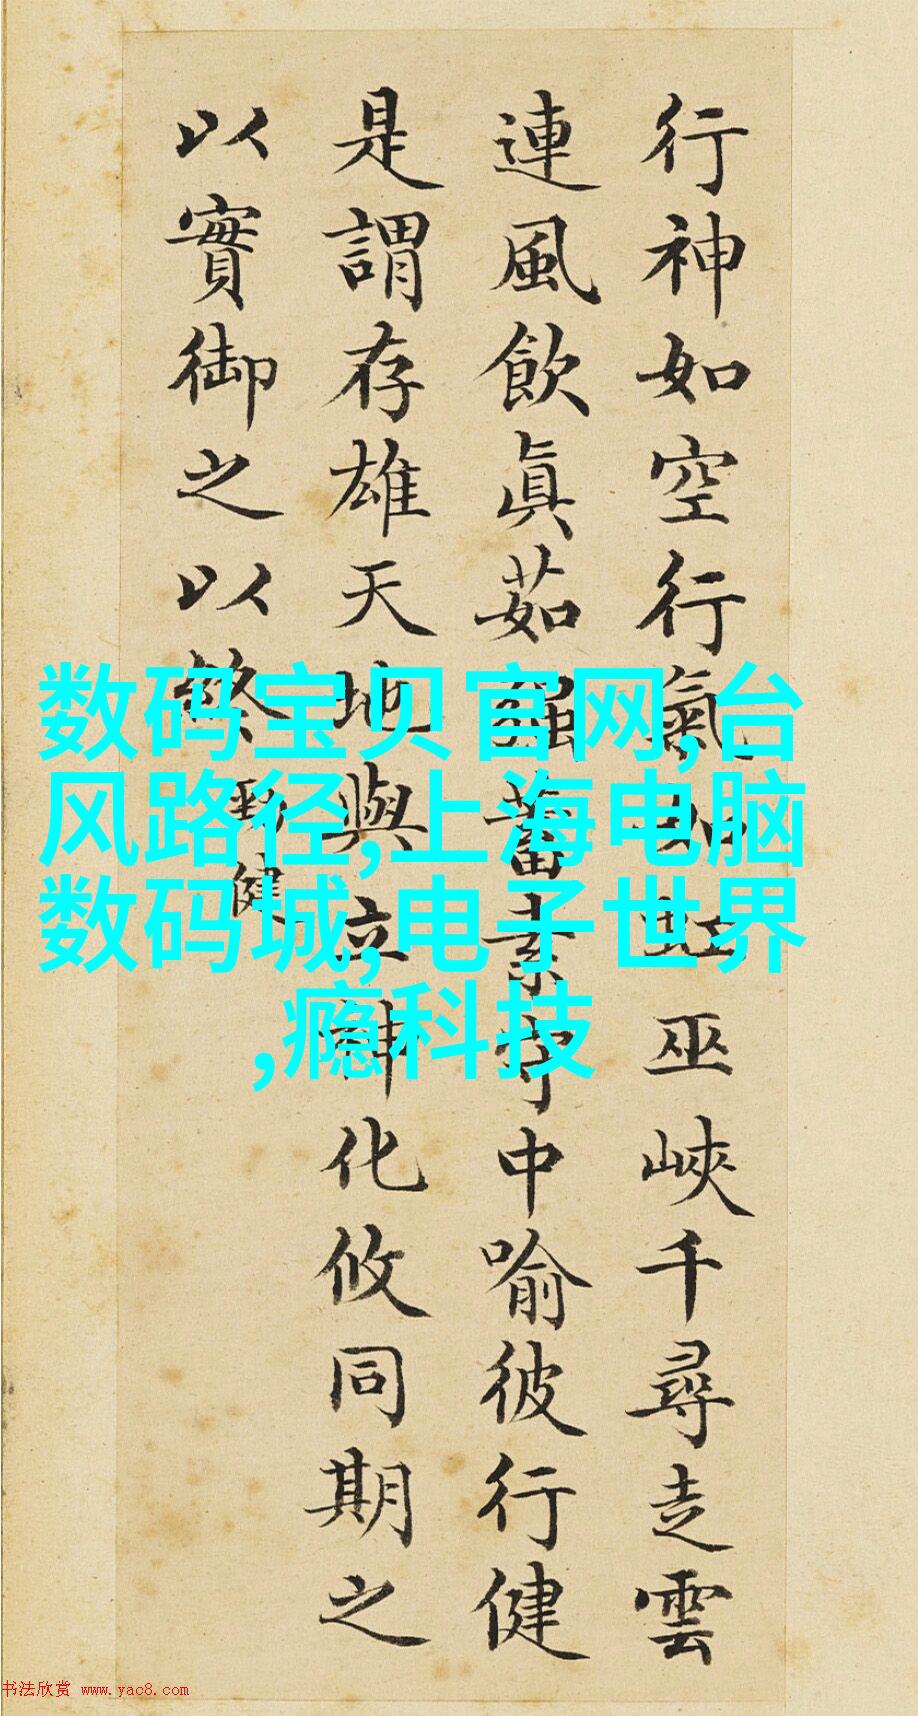 行神如空行氣如虹巫峽千尋走雲
連風飲眞茹强蓄素守中喻彼行健
是謂存雄天地與立神化攸同期之
以實御之以終
勁健
数码宝贝官网,台
风路径,上海电脑
数码城,电子世界
,瘾科技
书法欣赏 www.yac8.com